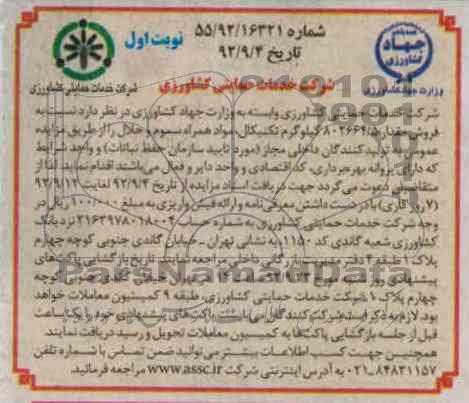 شماره ۵۵/۹۲/۱۶۳۲۱
تاریخ ۹۲/۹/۴
نوبت اول
جهاد کشاورزی
وزارت جهاد کشاورزی
شرکت خدمات حمایتی کشاورزی
شرکت خدمات حمایتی کشاورزی
شرکت خدمات حمایتی کشاورزی وابسته به وزارت جهاد کشاورزی در نظر دارد نسبت به
فروش مقدار ۸۰۲۶۶۴/۵ کیلوگرم تکنیکال، مواد همراه سموم و حلال را از طریق مزایده
عمومی به تولیدکنندگان داخلی مجاز (مورد تایید سازمان حفظ نباتات) و واجد شرایط
که دارای پروانه بهره‌برداری، کد اقتصادی و واحد دایر و فعال می‌باشند اقدام نماید. لذا از
متقاضیان دعوت می‌گردد جهت دریافت اسناد مزایده از تاریخ ۹۲/۹/۴ لغایت ۹۲/۹/۱۲
(۷ روز کاری) با در دست داشتن معرفی نامه و ارائه فیش واریزی به مبلغ ۱۰۰/۰۰۰ ریال در
وجه شرکت خدمات حمایتی کشاورزی به شماره حساب ۲۱۶۳۹۷۸۰۱۸۰۰۴ نزد بانک
کشاورزی شعبه گاندی کد ۱۱۵۰ به نشانی تهران ـ خیابان گاندی جنوبی کوچه چهارم
پلاک ۱ طبقه ۲ دفتر مدیریت بازرگانی داخلی مراجعه نمایند. تاریخ بازگشایی پاکت‌های
پیشنهادی روز شنبه مورخ تهران خیابان گاندی جنوبی کوچه
چهارم پلاک ۱ شرکت خدمات حمایتی کشاورزی، طبقه ۹ کمیسیون معاملات خواهد
بود. لازم به ذکر است شرکت کنندگان می‌بایست پاکت‌های پیشنهادی خود را یک ساعت
قبل از جلسه بازگشایی پاکت‌ها به کمیسیون معاملات تحویل و رسید دریافت نمایند.
همچنین جهت کسب اطلاعات بیشتر می‌توانید ضمن تماس با شماره تلفن
۰۲۱-۸۴۸۳۱۱۵۷ به آدرس اینترنتی شرکت www.assc.ir مراجعه فرمائید.
ParsNamadData